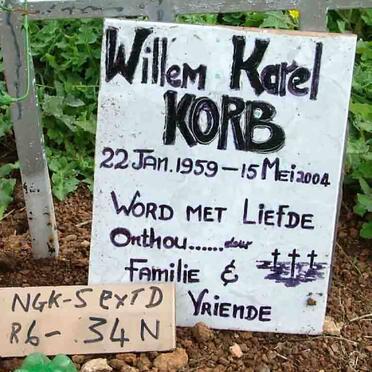 Willem Karel
KORB
22 JAN. 1959 – 15 MEI 2004
WORD MET LIEFDE
Onthou...... deur
FAMILIE &
VRIENDE
NGK-S EXT D
R6- 34N